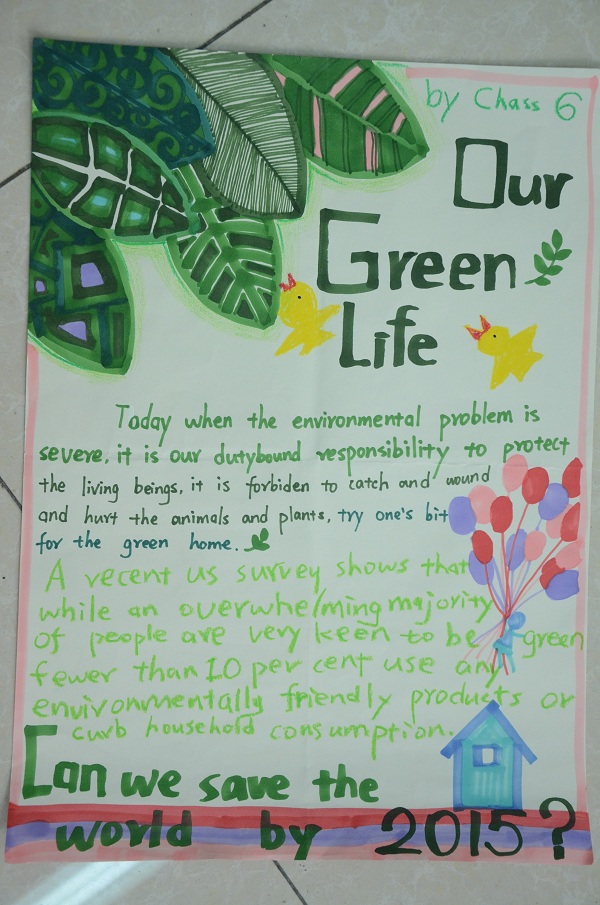 by Chass 6
Our
Green
Life
Today when the environmental problem is
severe, it is our dutybound responsibility to protect
the living beings, it is forbiden to catch and wound
and hurt the animals and plants, try one's bit
for the green home.
A recent us survey shows that
while an overwhelming majority
of people are very keen to be green
fewer than 10 per cent use any
environmentally friendly products or
curb household consumption.
Can we save the
world by 2015?